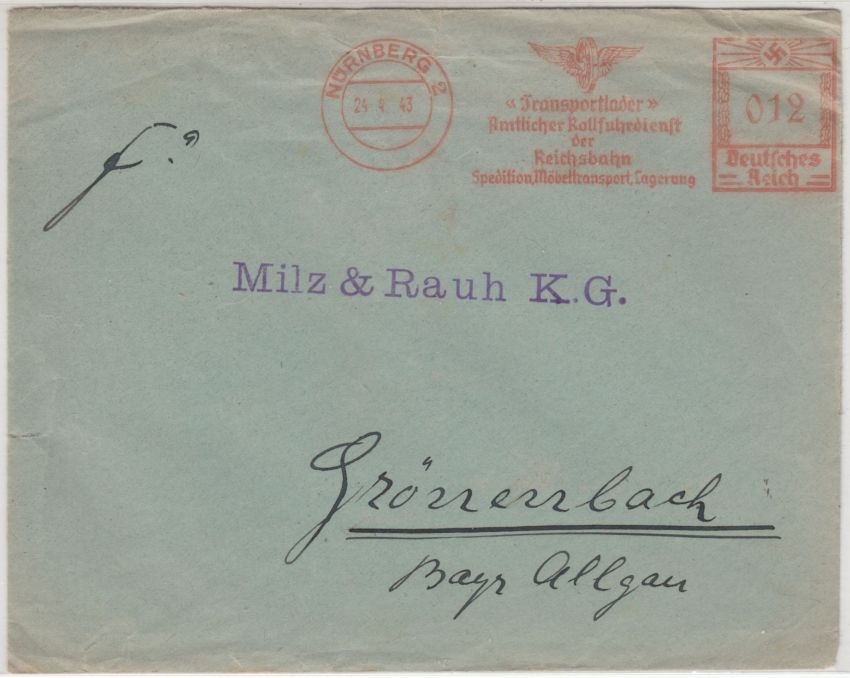 NÜRNBERG 2
24. 4. 43
«Transportlader»
Amtlicher Rollfuhrdienst
der
Reichsbahn
Spedition, Möbeltransport, Lagerung
012
Deutsches
Reich
Milz & Rauh K.G.
Grönenbach
Bayr Allgäu